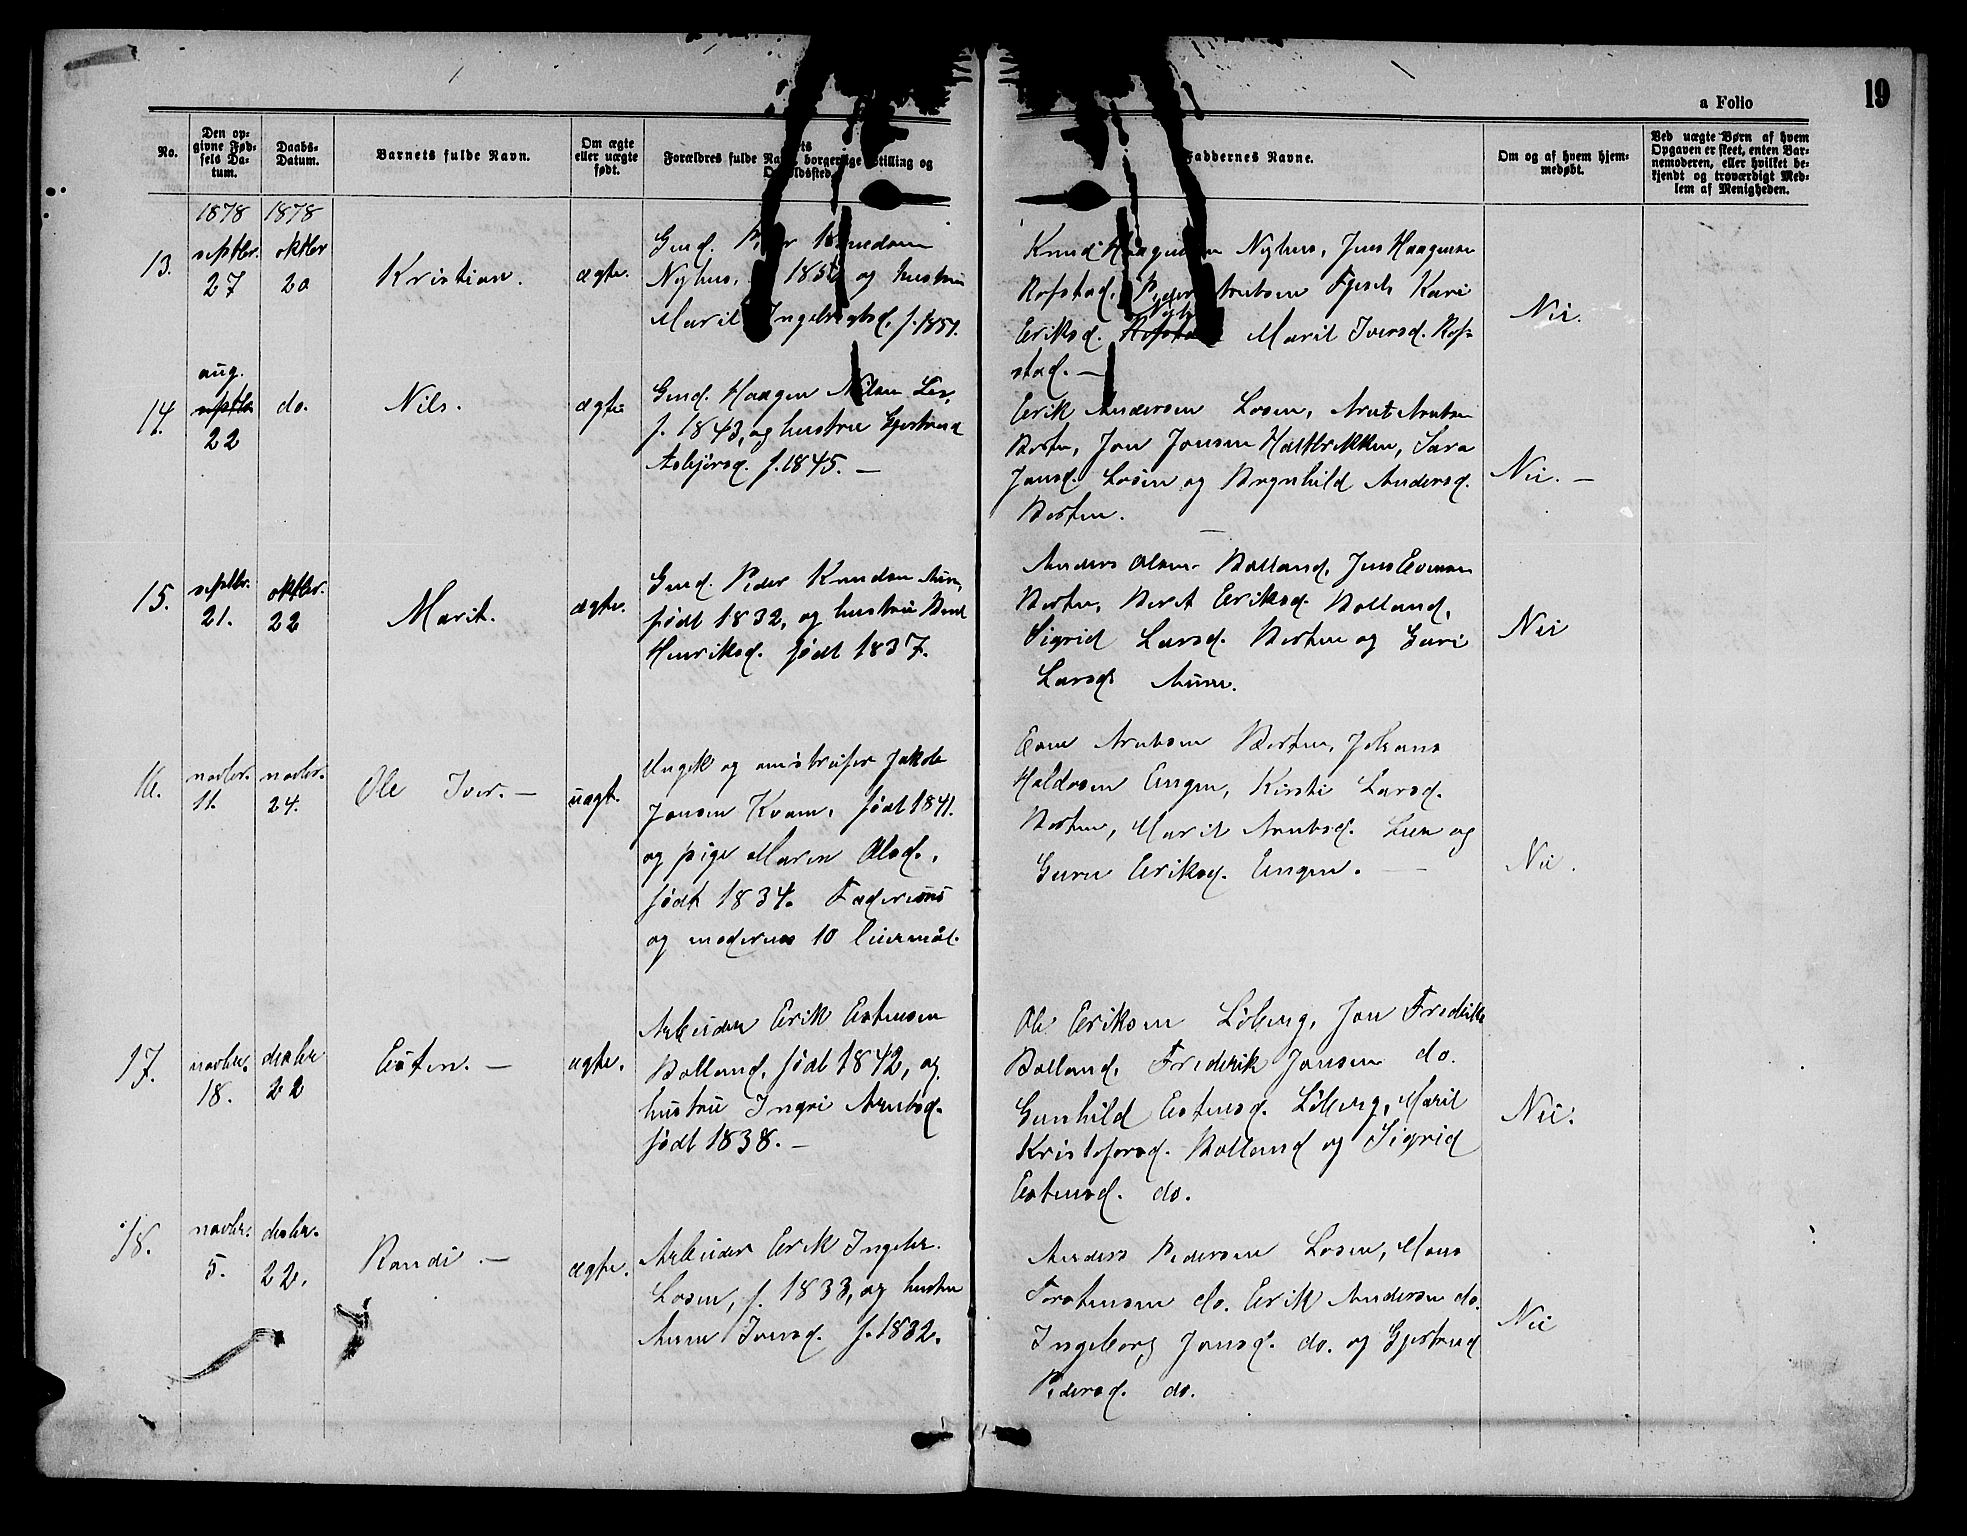 a Folio
19
No.
Den op-
givne Fød-
sels Da-
tum.
Daabs-
Datum.
Barnets fulde Navn.
Om ægte
eller uægte
født.
Forældres fulde borgerlige Stilling og
Faddernes Navne.
Om og af hvem hjem-
medøbt.
Ved uægte Børn af hvem
Opgaven er skeet, enten Bar-
nemoderen, eller hvilket be-
kjendt og troværdigt Med-
lem af Menigheden.
1878 1878
13.
septbr.
27
oktbr
20
Kristian.
ægte.
Gmd. Peder Knudsen
Nyhus, og hustru
Marit Ingebrigtsd. f. 1851.
Knud Haagensen Nyhus, Jens Haagensen
Rofstad, Peder Arntsen Fjesch Kari
Eriksd. Marit Iversd. Rof-
stad. —
Nei.
14.
aug.
septbr
22
do.
Nils.
ægte
Gmd. Haagen Nilsen
f. 1843, og hustru Gjertrud
Asbjørsd. f. 1845. —
Erik Andersen Losen, Arnt Arntsen
Børten, Jon Jonsen Haltbrekken, Sara
Jonsd. Losen og Brynhild Andersd.
Børten. —
Nei. —
15.
septbr.
21.
oktbr.
22
Marit.
ægte.
Gmd. Peder Knudsen Aune,
født 1832, og hustru Berit
Henriksd. født 1837.
Anders Olsen Bolland, Jens Evensen
Børten, Berit Eriksd. Bolland,
Sigrid Larsd. Børten og Guri
Larsd. Aune.
Nei
16.
novbr.
11.
novbr.
24.
Ole Iver. —
uægt.
Ungk og Jakob
Jonsen Kvam, født 1841.
og pige Maren Olsd.,
født 1834. Faderens
og moderens 10 leiermål.
Even Arntsen Børten, Johans
Haldosen Engen, Kirsti Larsd.
Børten, Marit Arntsd. Lien og
Guru Eriksd. Engen. —
Nei.
17.
novbr.
18.
desbr
22
Esten. —
ægte.
Arbeider Erik Estensen
Bolland, født 1842, og
hustru Ingri Arntsd.
født 1838. —
Ole Eriksen Løberg, Jon Fredrik
Bolland, Frederik Jonsen do.
Gunhild Estensd. Løberg, Marit
Kristofersd. Bolland og Sigrid
Estensd. do.
Nei.
18.
novbr.
5.
desbr.
22.
Randi. —
ægte.
Arbeider Erik Ingebr.
Losen, f. 1833, og hustru
Anne Iversd. f. 1832.
Anders Pedersen Losen, Mons
Torstensen do. Erik Andersen do.
Ingeborg Jonsd. do. og Gjertrud
Pedersd. do.
Nei